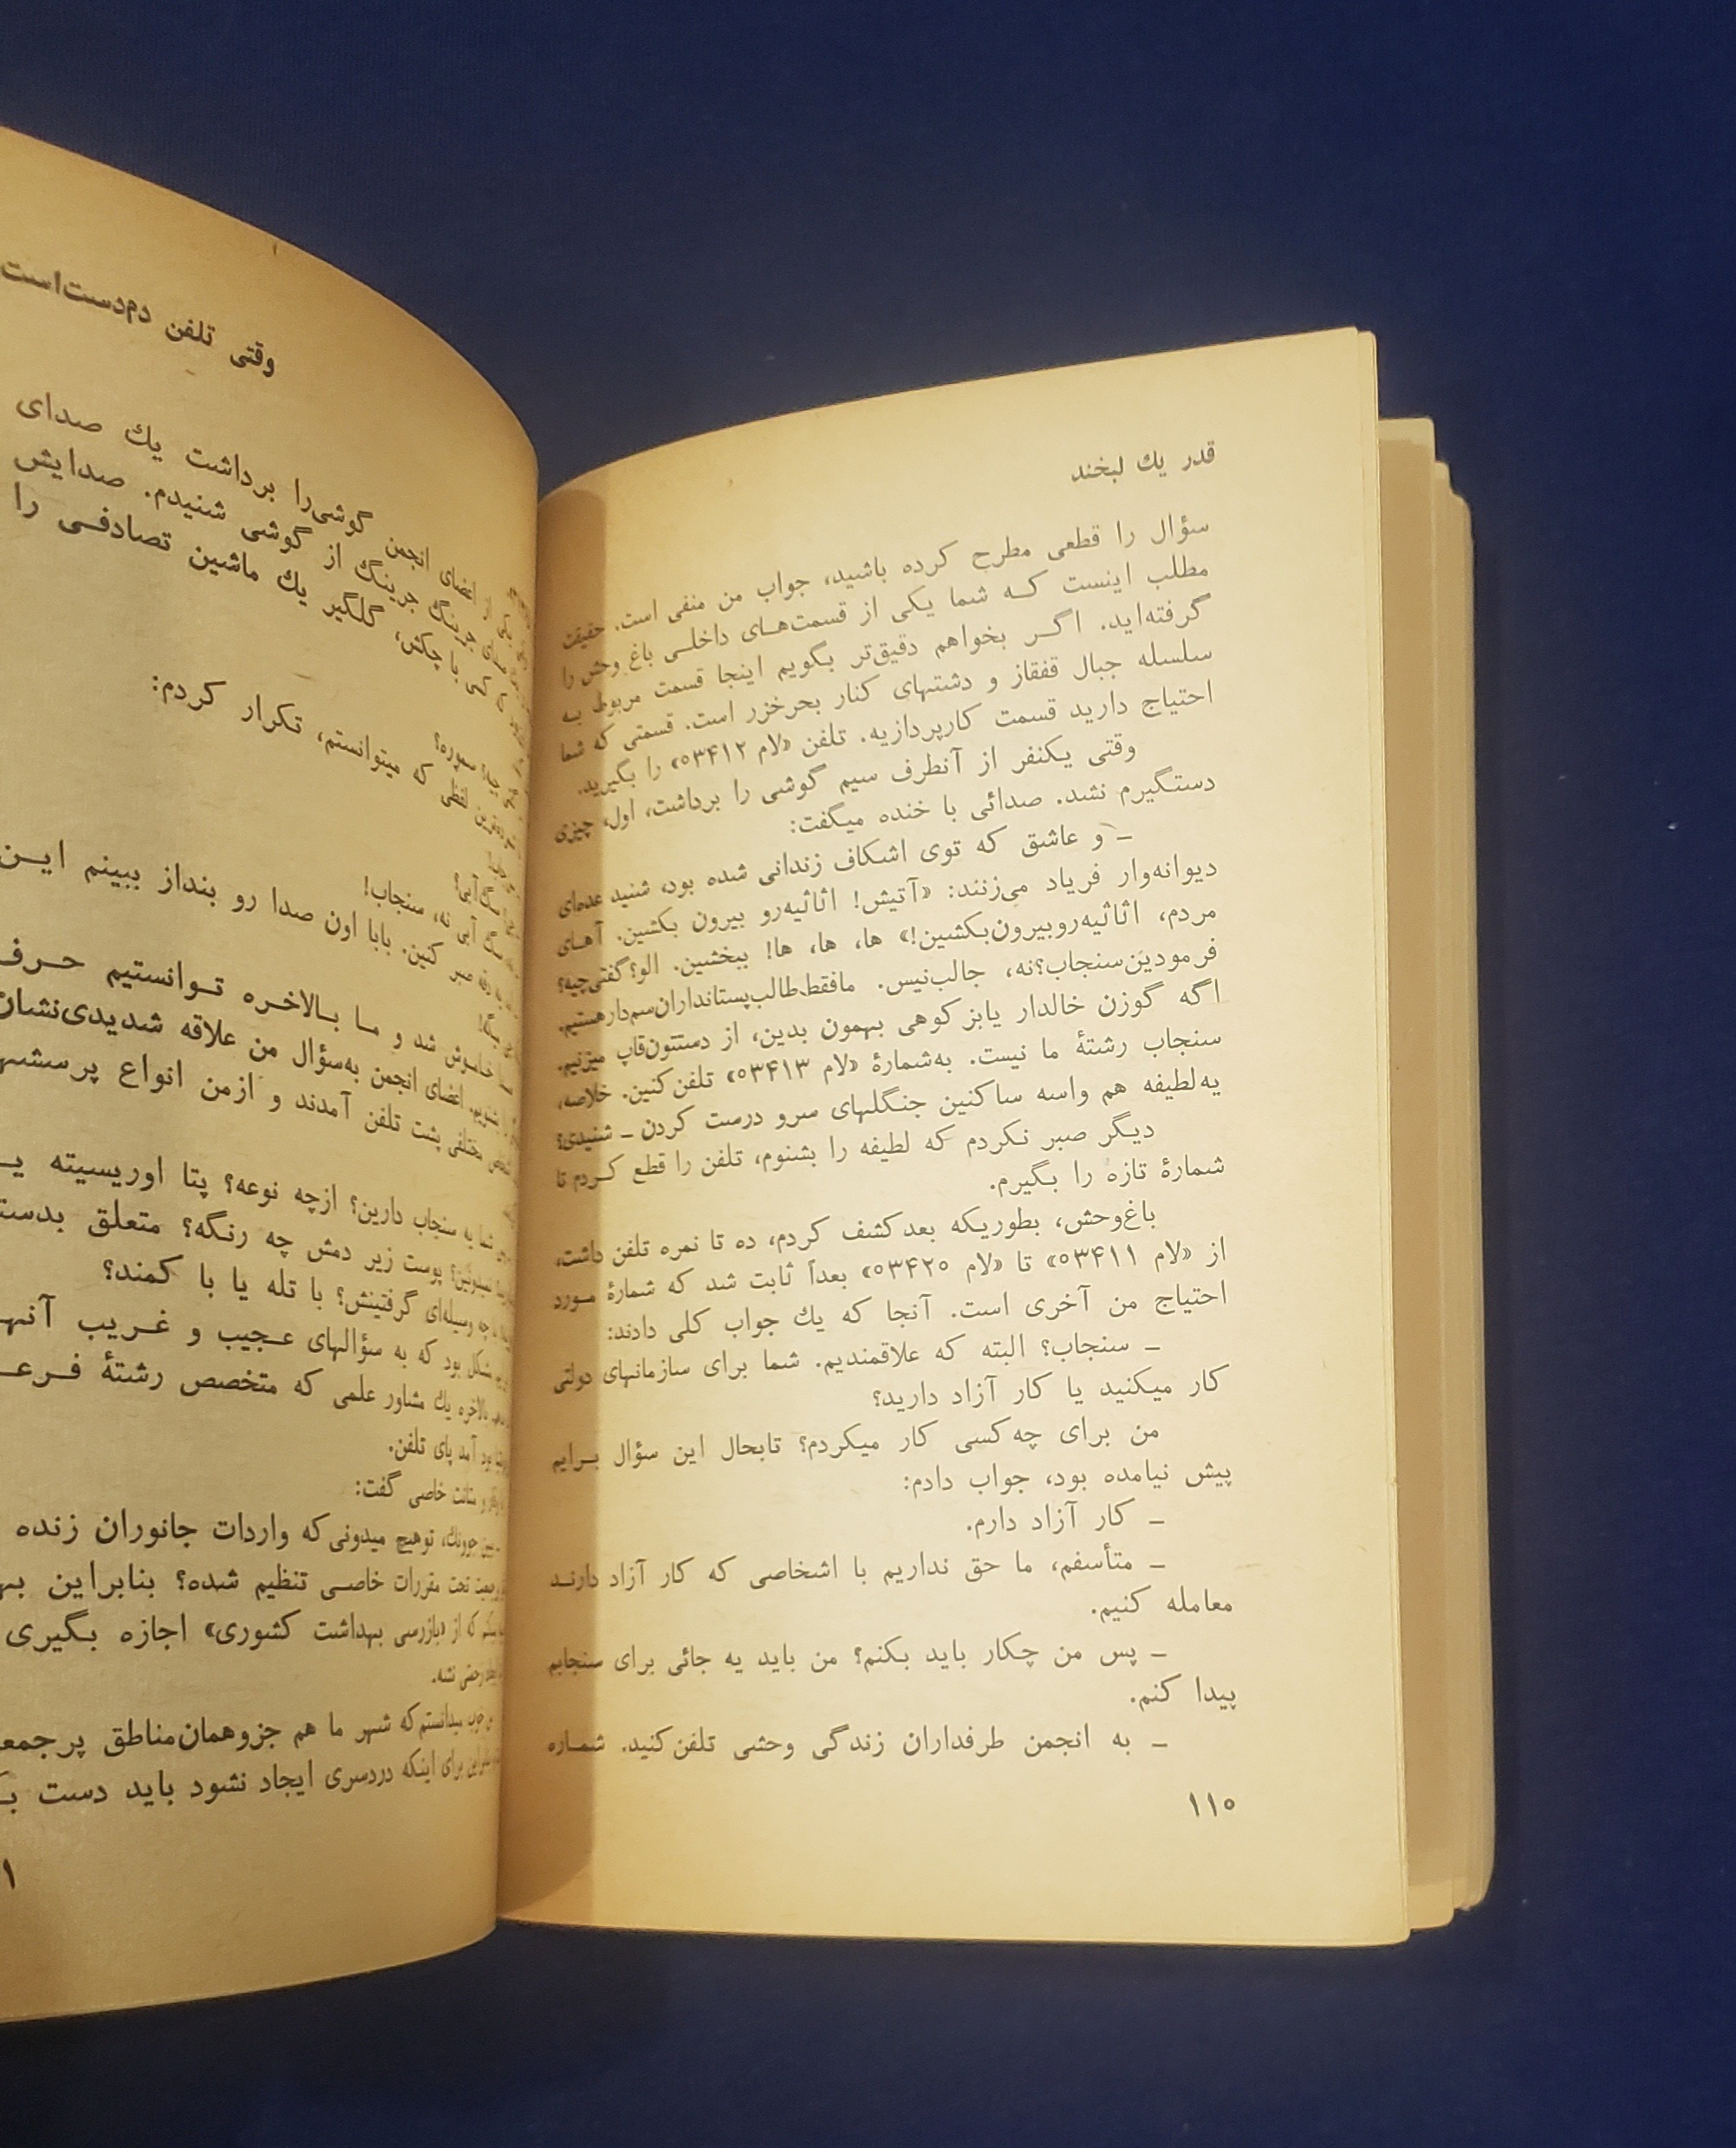 قدر يك لبخند
سؤال را قطعی مطرح کرده باشید، جواب من منفی است. حقیقت
مطلب اینست کــه شما یکی از قسمت‌هــای داخلــی باغ وحش را
گرفته‌اید. اگــر بخواهم دقیق‌تر بگویم اینجا قسمت مربوط بــه
سلسله جبال قفقاز و دشتهای کنار بحرخزر است. قسمتی که شما
احتیاج دارید قسمت کارپردازیه. تلفن «لام ۵۳۴۱۲» را بگیرید.
وقتی یکنفر از آنطرف سیم گوشی را برداشت، اول، چیزی
دستگیرم نشد. صدائی با خنده میگفت:
ــ و عاشق که توی اشکاف زندانی شده بود، شنید عده‌ای
دیوانه‌وار فریاد می‌زنند: «آتیش! اثاثیه‌رو بیرون بکشین. آهــای
مردم، اثاثیه‌روبیرون‌بکشین!» ها، ها، ها! ببخشین. الو؟ گفتی‌چیه؟
فرمودین‌سنجاب؟نه، جالب‌نیس. مافقط‌طالب‌پستانداران‌سم‌دارهستیم.
اگه گوزن خالدار یابزکوهی بهمون بدین، از دستتون‌قاپ میزنیم.
سنجاب رشتهٔ ما نیست. به‌شمارهٔ «لام ۵۳۴۱۳» تلفن‌کنین. خلاصه،
یه‌لطیفه هم واسه ساکنین جنگلهای سرو درست کردن ــ شنیدی؟
دیگر صبر نکردم که لطیفه را بشنوم، تلفن را قطع کــردم تا
شمارهٔ تازه را بگیرم.
باغ‌وحش، بطوریکه بعد کشف کردم، ده تا نمره تلفن داشت،
از «لام ۵۳۴۱۱» تا «لام ۵۳۴۲۰» بعداً ثابت شد که شمارهٔ مــورد
احتیاج من آخری است. آنجا که يك جواب کلی دادند:
ــ سنجاب؟ البته که علاقمندیم. شما برای سازمانهای دولتی
کار میکنید یا کار آزاد دارید؟
من برای چه‌کسی کار میکردم؟ تابحال این سؤال بــرایم
پیش نیامده بود، جواب دادم:
ــ کار آزاد دارم.
ــ متأسفم، ما حق نداریم با اشخاصی که کار آزاد دارنــد
معامله کنیم.
ــ پس من چکار باید بکنم؟ من باید یه جائی برای سنجابم
پیدا کنم.
ــ به انجمن طرفداران زندگی وحشی تلفن‌کنید. شمــاره
۱۱۰
وقتی تلفن دم‌دست‌است
از اعضای انجمن گوشی‌را برداشت يك صدای
جرینگ جرینگ از گوشی شنیدم. صدایش
با چکش، گلگیر يك ماشین تصادفــی را
چیه؟ سموره؟
لفظی که میتوانستم، تکرار کردم:
سگ‌آبی؟
سگ آبی نه، سنجاب!
صبر کنین. بابا اون صدا رو بنداز ببینم ایــن
خاموش شد و مــا بــالاخــره تــوانستیم حــرف
بشنویم. اعضای انجمن به‌سؤال من علاقه شدیدی‌نشان
مختلفی پشت تلفن آمدند و ازمن انواع پرسشها
شما یه سنجاب دارین؟ ازچه نوعه؟ پتا اوریسیته یــا
پوست زیر دمش چه رنگه؟ متعلق بدست
چه وسیله‌ای گرفتینش؟ با تله یا با کمند؟
مشکل بود که به سؤالهای عــجیب و غــریب آنهــا
بالاخره يك مشاور علمی که متخصص رشتهٔ فــرعــی
بود آمد پای تلفن.
و متانت خاصی گفت:
توهیچ میدونی‌که واردات جانوران زنده
تحت مقررات خاصــی تنظیم شده؟ بنابراین بهتــر
که از «بازرسی بهداشت کشوری» اجازه بــگیری
نشه.
خوب میدانستم‌که شهر ما هم جزوهمان‌مناطق پرجمعیت
برای اینکه دردسری ایجاد نشود باید دست بــ